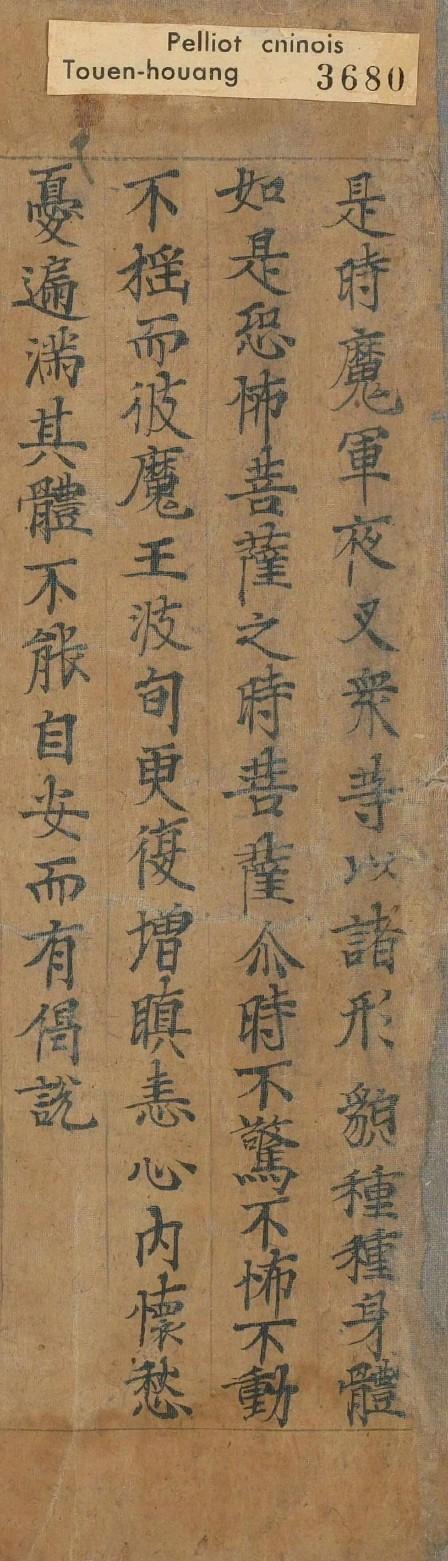 Pelliot chinois
Touen-houang 3680
是時魔軍夜叉衆等以諸形貌種種身體
如是恐怖菩薩之時菩薩尒時不驚不怖不動
不揺而彼魔王波旬更復增瞋恚心内懷愁
憂遍滿其體不能自安而有偈說